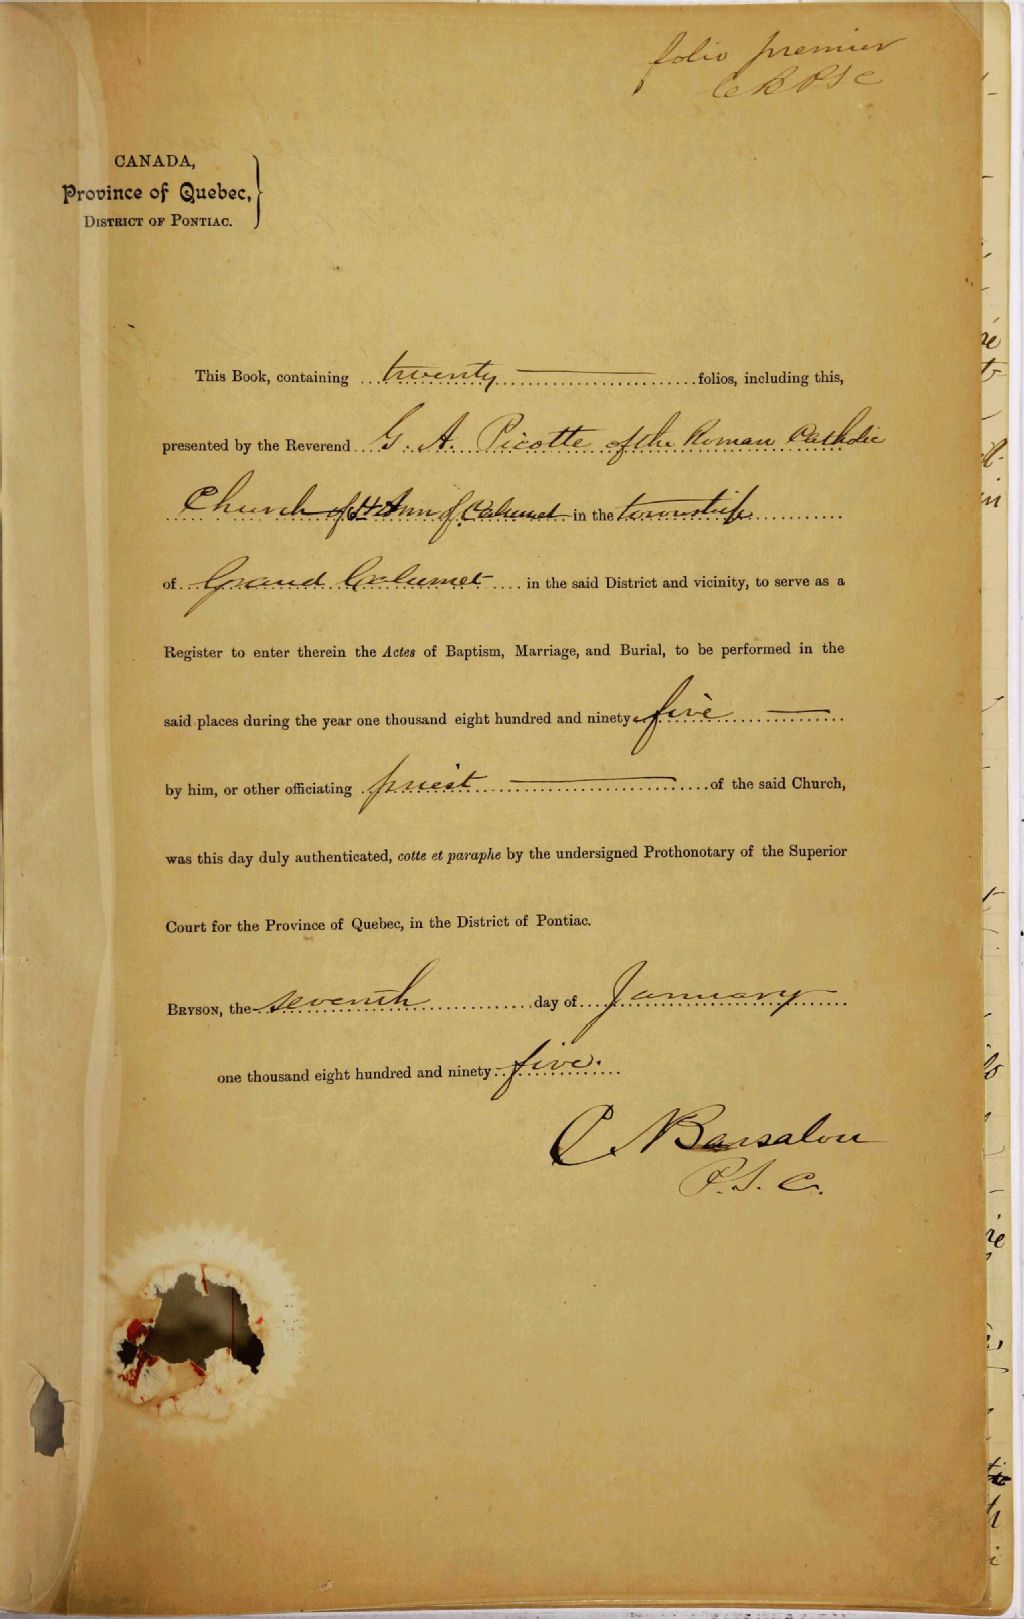 folio premier
C B PSC
CANADA,
Province of Quebec,
DISTRICT OF PONTIAC.
This Book, containing twenty folios, including this,
presented by the Reverend G. A. Picotte of the Roman Catholic
Church of St Ann of Calumet in the township
of Grand Calumet in the said District and vicinity, to serve as a
Register to enter therein the Actes of Baptism, Marriage, and Burial, to be performed in the
said places during the year one thousand eight hundred and ninety five
by him, or other officiating priest of the said Church,
was this day duly authenticated, cotte et paraphe by the undersigned Prothonotary of the Superior
Court for the Province of Quebec, in the District of Pontiac.
BRYSON, the seventh day of January
one thousand eight hundred and ninety five.
Barsalou
P. S. C.